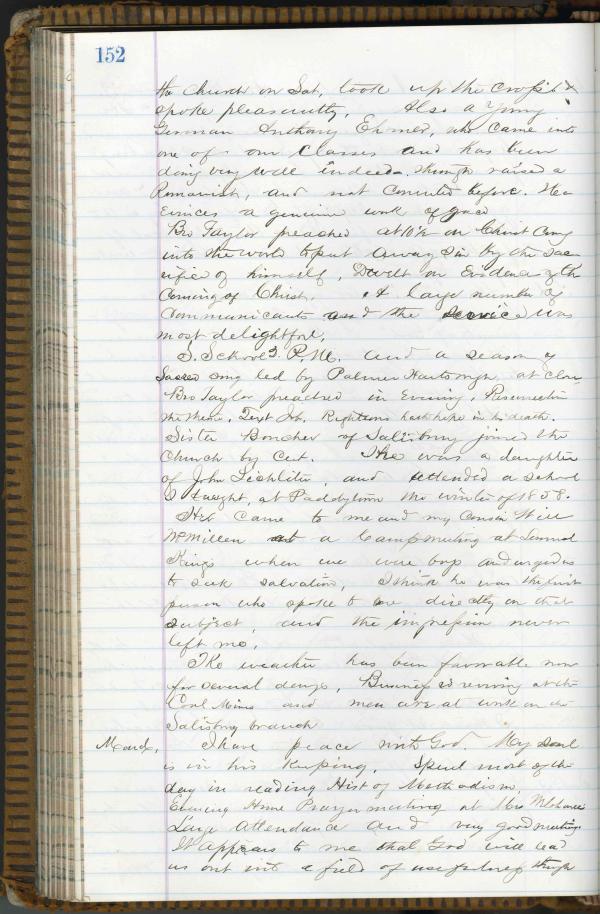 152
the church on Sat, took up the cross &
spoke pleasantly, Also a young
German Anthony Ehmer, who came into
one of our classes and has been
doing very well indeed, though raised a
Romanist, and not converted before. He
evinces a genuine work of grace
Bro Taylor preached at 10½ on Christ coming
into the world to put away sin by the sac-
rifice of himself, Dwelt on Evidence of the
coming of Christ. A large number of
communicants and the service was
most delightful,
S. School 2 P.M. and a season of
Sacred song led by Palmer Hartsough at close
Bro Taylor preached in Evening, Resurrection
the theme, Text Job. Righteous hath hope in his death.
Sister Boucher of Salisbury joined the
church by Cert. She was a daughter
of John Lichliter, and attended a school
I taught, at Paddytown the winter of 1858.
He came to me and my cousin Will
McMillen at a Campmeeting at Samuel
Kings when we were boys and urged us
to seek salvation, I think he was the first
person who spoke to me directly on that
subject, and the impression never
left me,
The weather has been favorable now
for several days, Business is reviving at the
Coal Mines and men are at work on the
Salisbury branch
Monday, I have peace with God. My soul
is in his keeping. Spent most of the
day in reading Hist of Methodism,
Evening Home Prayer meeting at Mrs
Large attendance and very good meeting
It appears to me that God will lead
us out into a field of usefulness though